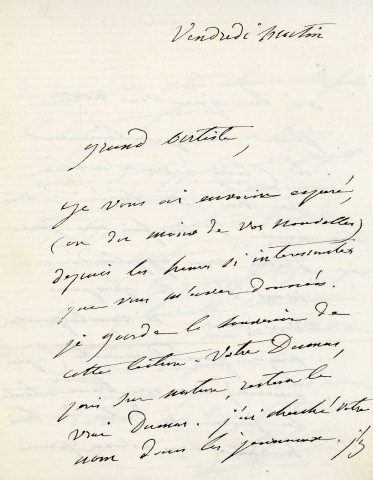 Vendredi matin
grand Artiste,
Je vous ai envoyé
(ou du moins de vos nouvelles)
depuis les heures si intéressantes
que vous m'avez données.
je garde le souvenir de
cette lecture. Votre Dumas,
pris sur nature, restera le
vrai Dumas. j'ai cherché votre
nom dans les journaux.